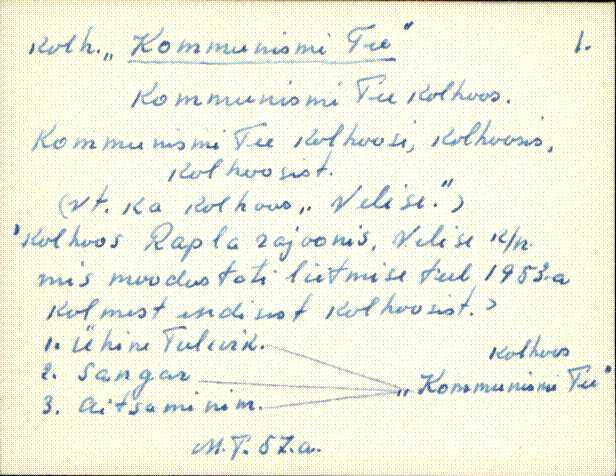 Kolh. „Kommunismi Tee" 1.
Kommunismi Tee kolhoos.
Kommunismi Tee kolhoosi, kolhoosis,
kolhoosist.
(vt. ka kolhoos „Velise.")
kolhoos Rapla rajoonis, Velise k/n
mis moodustati liitmise teel 1953.a
kolmest endisest kolhoosist.>
1. Ühine Tulevik.
2. Sangar
3. Aitsaminim.
kolhoos
„Kommunismi Tee"
M.T. 57.a.